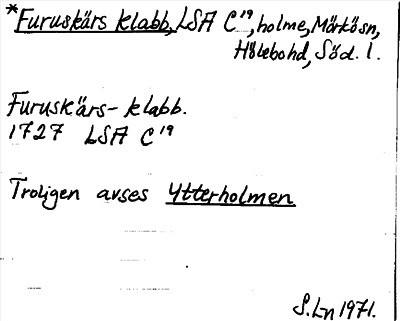 *Furuskärs klabb, LSA C¹⁹, holme, Mörkösn,
Hölebohd, Söd. l.
Furuskärs-klabb.
1727 LSA C¹⁹
Troligen avses Ytterholmen
S.Ln 1971.